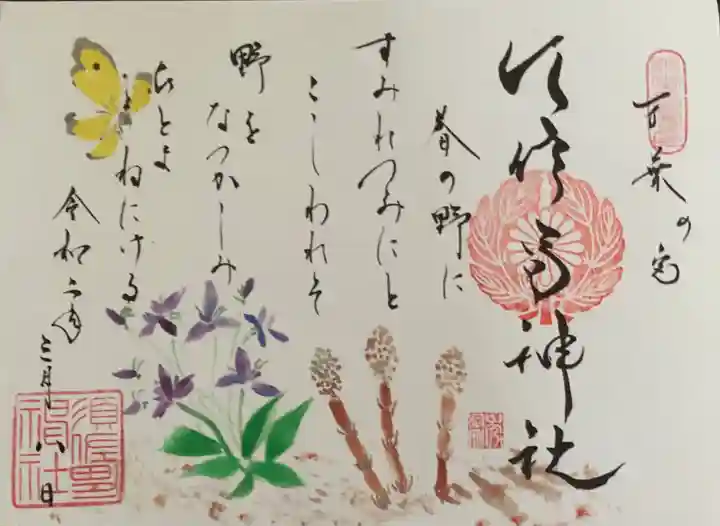 万葉の宮
須佐男神社
春の野に
すみれつみにと
こしわれそ
野を
なつかしみ
ひとよ
ねにける
令和二年三月八日
須佐男
神社